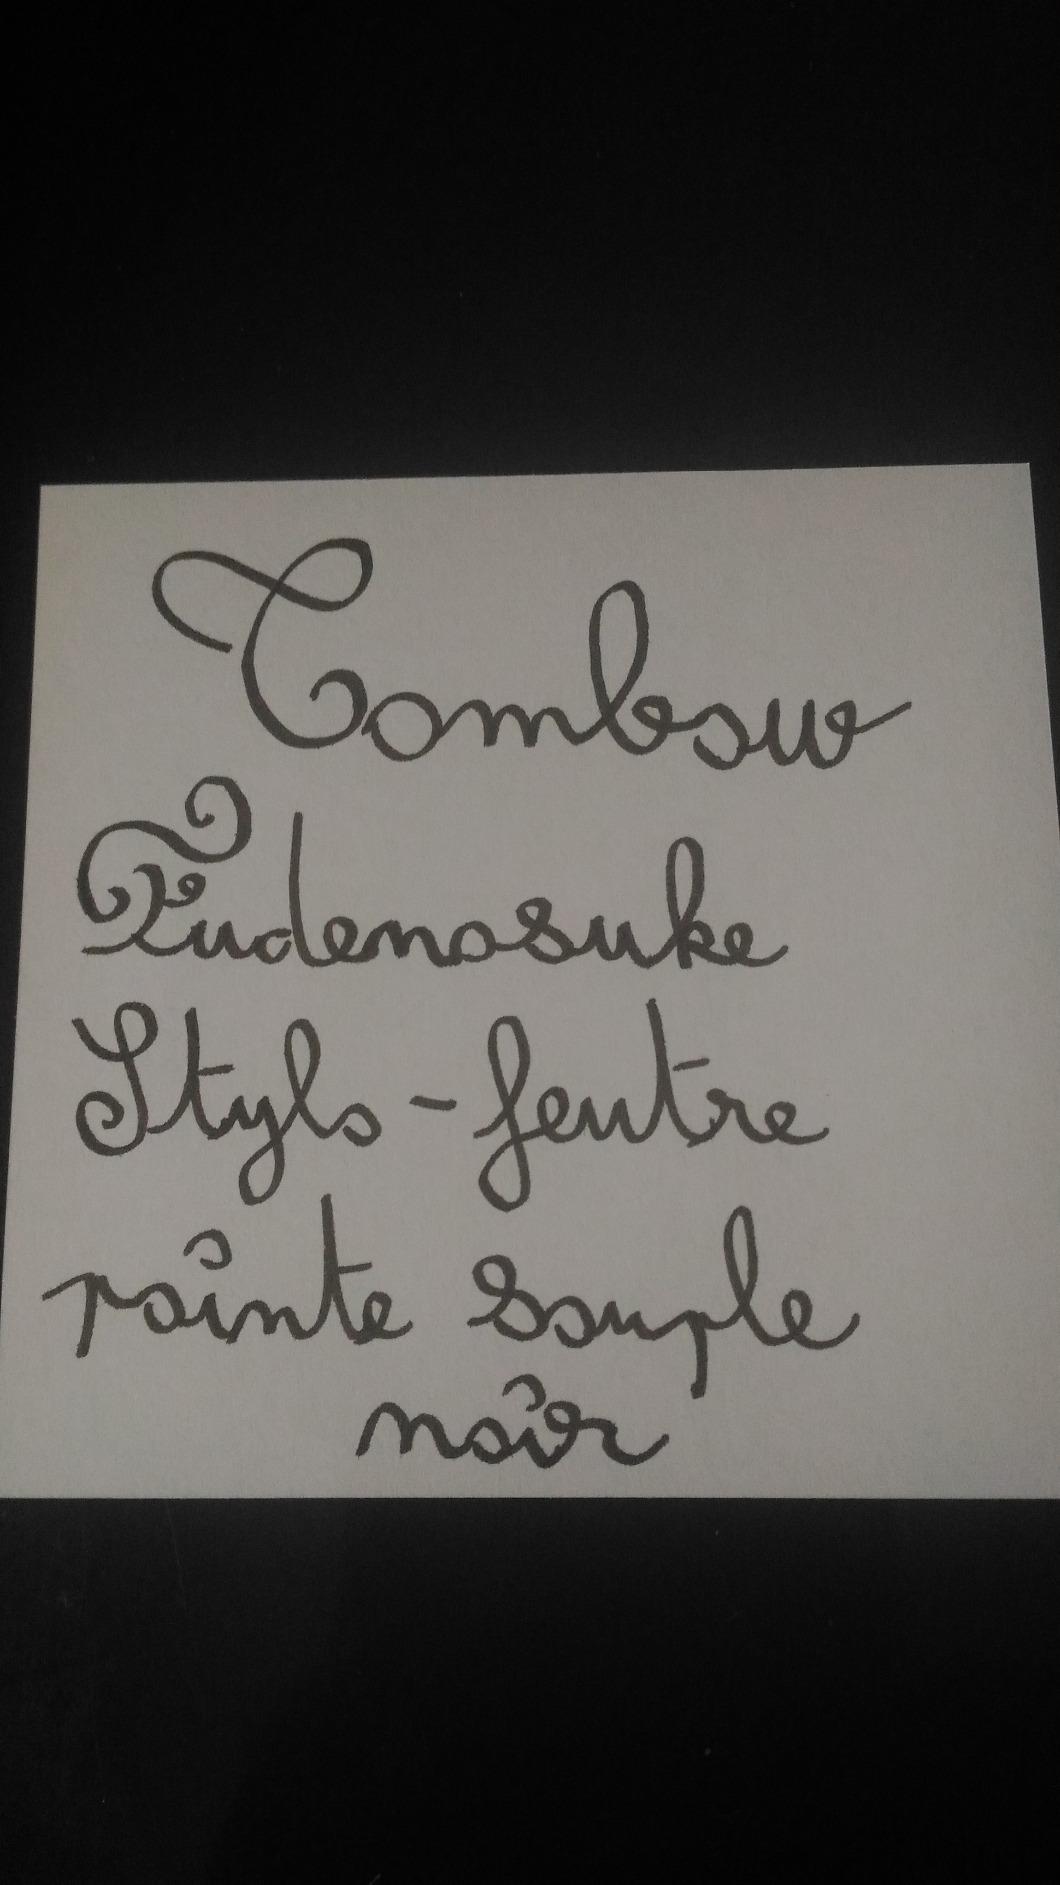 Tombow
Fudenosuke
Stylo-feutre
pointe souple
noir